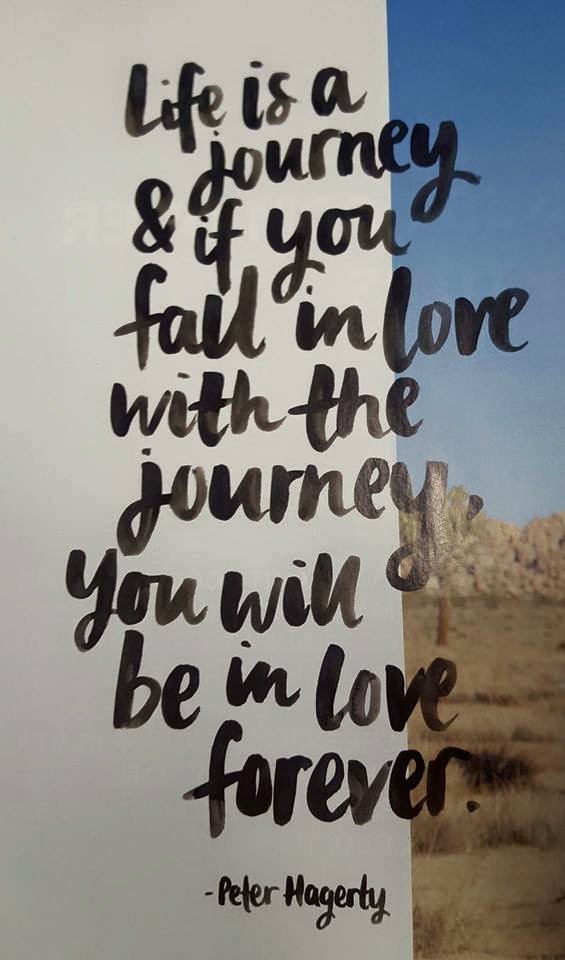 Life is a
journey
& if you
fall in love
with the
journey,
you will
be in love
forever.
-Peter Hagerty